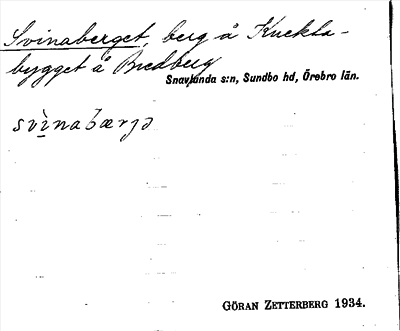 Svinaberget, berg å Kuckla-
bygget å Bredberg
Snavlunda s:n, Sundbo hd, Örebro län.
svìnabærjə
GÖRAN ZETTERBERG 1934.